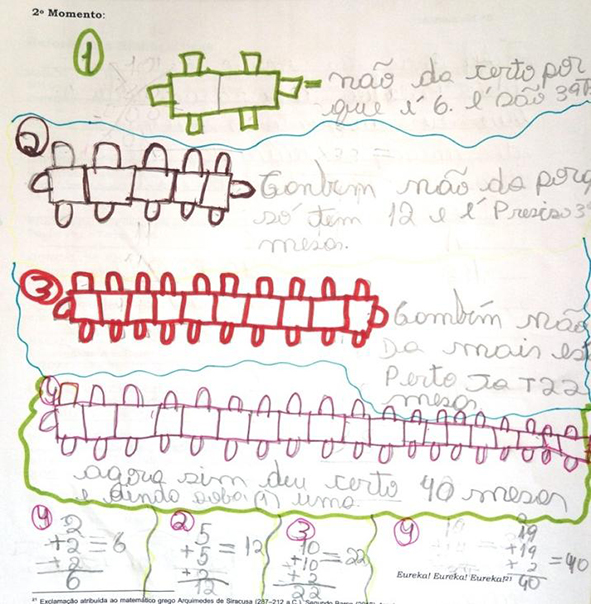 2º Momento:
1
= não da certo por
que é 6. é são 39
2
Tombém não da porq
só tem 12 e é Preciso 3
mesas.
3
Tombím não
Da mais es
Perto Ja T 22
mesas
4
agora sim deu certo 40 mesas
e dindo sobra (1) uma
4
2
+2 = 6
+2
6
2
5
+5 = 12
+2
12
3
10
+10 = 22
+2
22
4
2
19
+19
+2 = 40
40
Eureka! Eureka! Eureka!²¹
²¹ Exclamação atribuída ao matemático grego Arquimedes de Siracusa (287-212 a.C.). Segundo